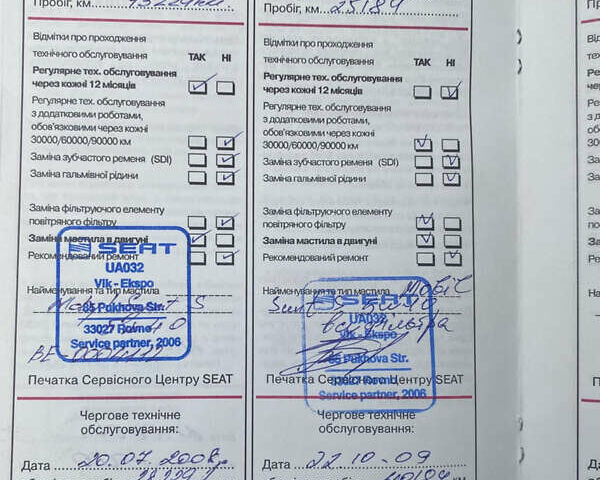 Пробіг, км
Відмітки про проходження
технічного обслуговування ТАК НІ
Регулярне тех. обслуговування
через кожні 12 місяців
Регулярне тех. обслуговування
з додатковими роботами,
обов'язковими через кожні
30000/60000/90000 км
Заміна зубчастого ременя (SDI)
Заміна гальмівної рідини
Заміна фільтруючого елементу
повітряного фільтру
Заміна мастила в двигуні
Рекомендований ремонт
Найменування та тип мастила
SEAT
UA032
Vlk - Ekspo
85 Pukhova Str.
33027 Rovno
Service partner, 2006
Печатка Сервісного Центру SEAT
Чергове технічне
обслуговування:
Дата 20.07.2008р.
Пробіг, км 25184
Відмітки про проходження
технічного обслуговування ТАК НІ
Регулярне тех. обслуговування
через кожні 12 місяців
Регулярне тех. обслуговування
з додатковими роботами,
обов'язковими через кожні
30000/60000/90000 км
Заміна зубчастого ременя (SDI)
Заміна гальмівної рідини
Заміна фільтруючого елементу
повітряного фільтру
Заміна мастила в двигуні
Рекомендований ремонт
Найменування та тип мастила Mobil
SEAT
UA032
Vlk - Ekspo
85 Pukhova Str.
33027 Rovno
Service partner, 2006
Печатка Сервісного Центру SEAT
Чергове технічне
обслуговування:
Дата 22.10-09